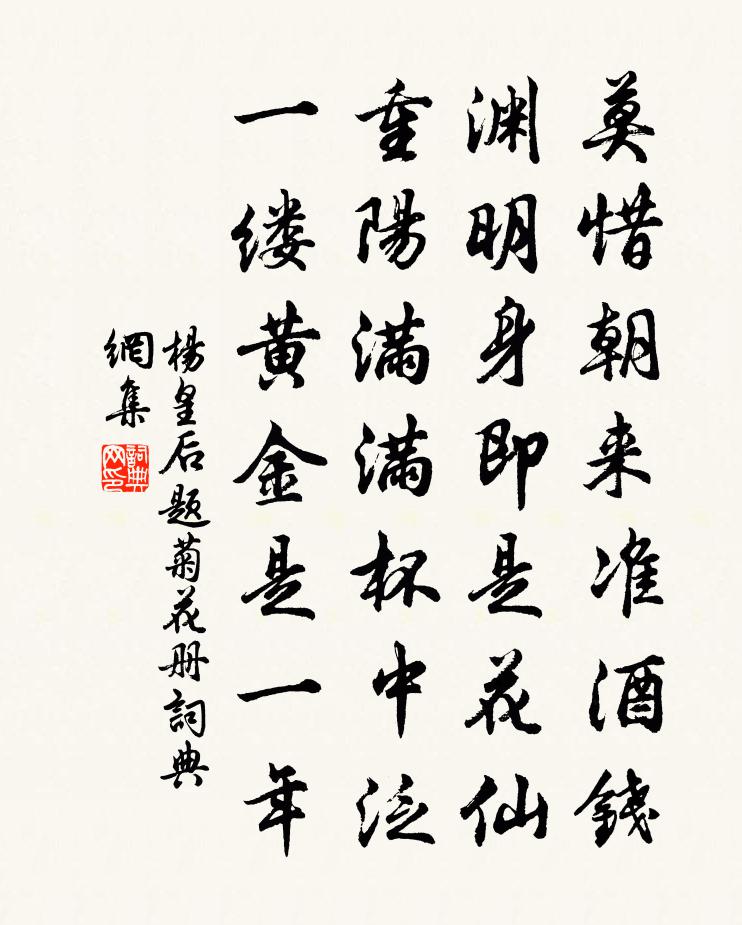 莫惜朝来准酒錢
渊明身即是花仙
重陽满满杯中泛
一缕黄金是一年
楊皇后题菊花册詞典
網集
詞典
网印